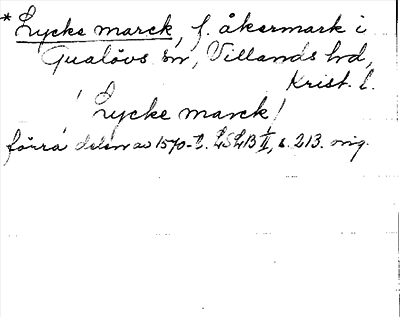 * Lycke marck, f. åkermark i
Gualövs sn, Villands hd,
Krist. l.
! Lycke marck!
förra delen av 1570-t. LSLB II, s. 213. orig.